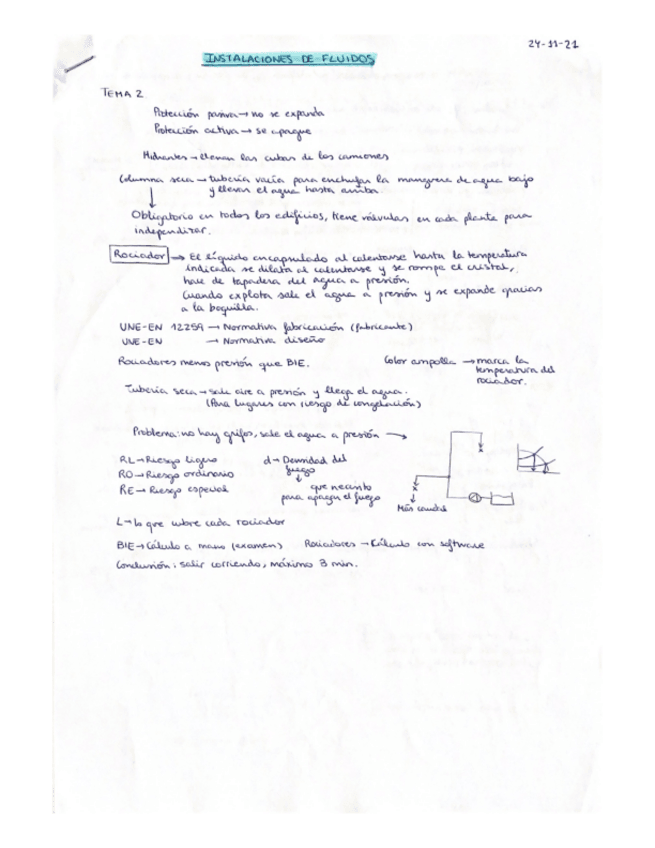 24-11-21
INSTALACIONES DE FLUIDOS
TEMA 2
Protección pasiva → no se expanda
Protección activa → se apague
Hidrantes → llenan las cubas de los camiones
Columna seca → tubería vacía para enchufar la manguera de agua bajo
y llevar el agua hasta arriba.
Obligatorio en todos los edificios, tiene válvulas en cada planta para
independizar.
Rociador → El líquido encapsulado al calentarse hasta la temperatura
indicada se dilata al calentarse y se rompe el cristal,
hace de tapadera del agua a presión.
Cuando explota sale el agua a presión y se expande gracias
a la boquilla.
UNE-EN 12259 → Normativa fabricación (fabricante)
UNE-EN → Normativa diseño
Rociadores menos presión que BIE. Color ampolla → marca la
temperatura del
rociador.
Tubería seca → sale aire a presión y llega el agua.
(Para lugares con riesgo de congelación)
Problema: no hay grifos, sale el agua a presión →
RL → Riesgo ligero d → Densidad del
fuego
RO → Riesgo ordinario
RE → Riesgo especial que necesito
para apagar el fuego
Más caudal
L → lo que cubre cada rociador
BIE → Cálculo a mano (examen) Rociadores → Cálculo con software
Conclusión: salir corriendo, máximo 3 min.